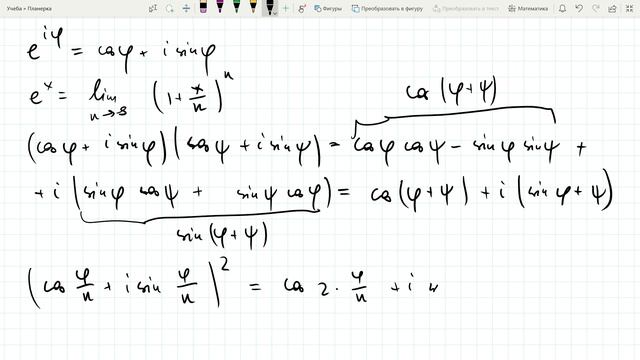 Учеба » Планерка
Фигуры
Преобразовать в фигуру
Преобразовать в текст
Математика
e^{iφ} = cosφ + i sinφ
e^x = lim_{n→∞} (1 + x/n)^n
cos (φ+ψ)
(cosφ + i sinφ)(cosψ + i sinψ) = cosφ cosψ − sinφ sinψ +
+ i (sinφ cosψ + sinψ cosφ) = cos(φ+ψ) + i (sinφ+ψ)
sin(φ+ψ)
(cos φ/n + i sin φ/n)^2 = cos 2 · φ/n + i